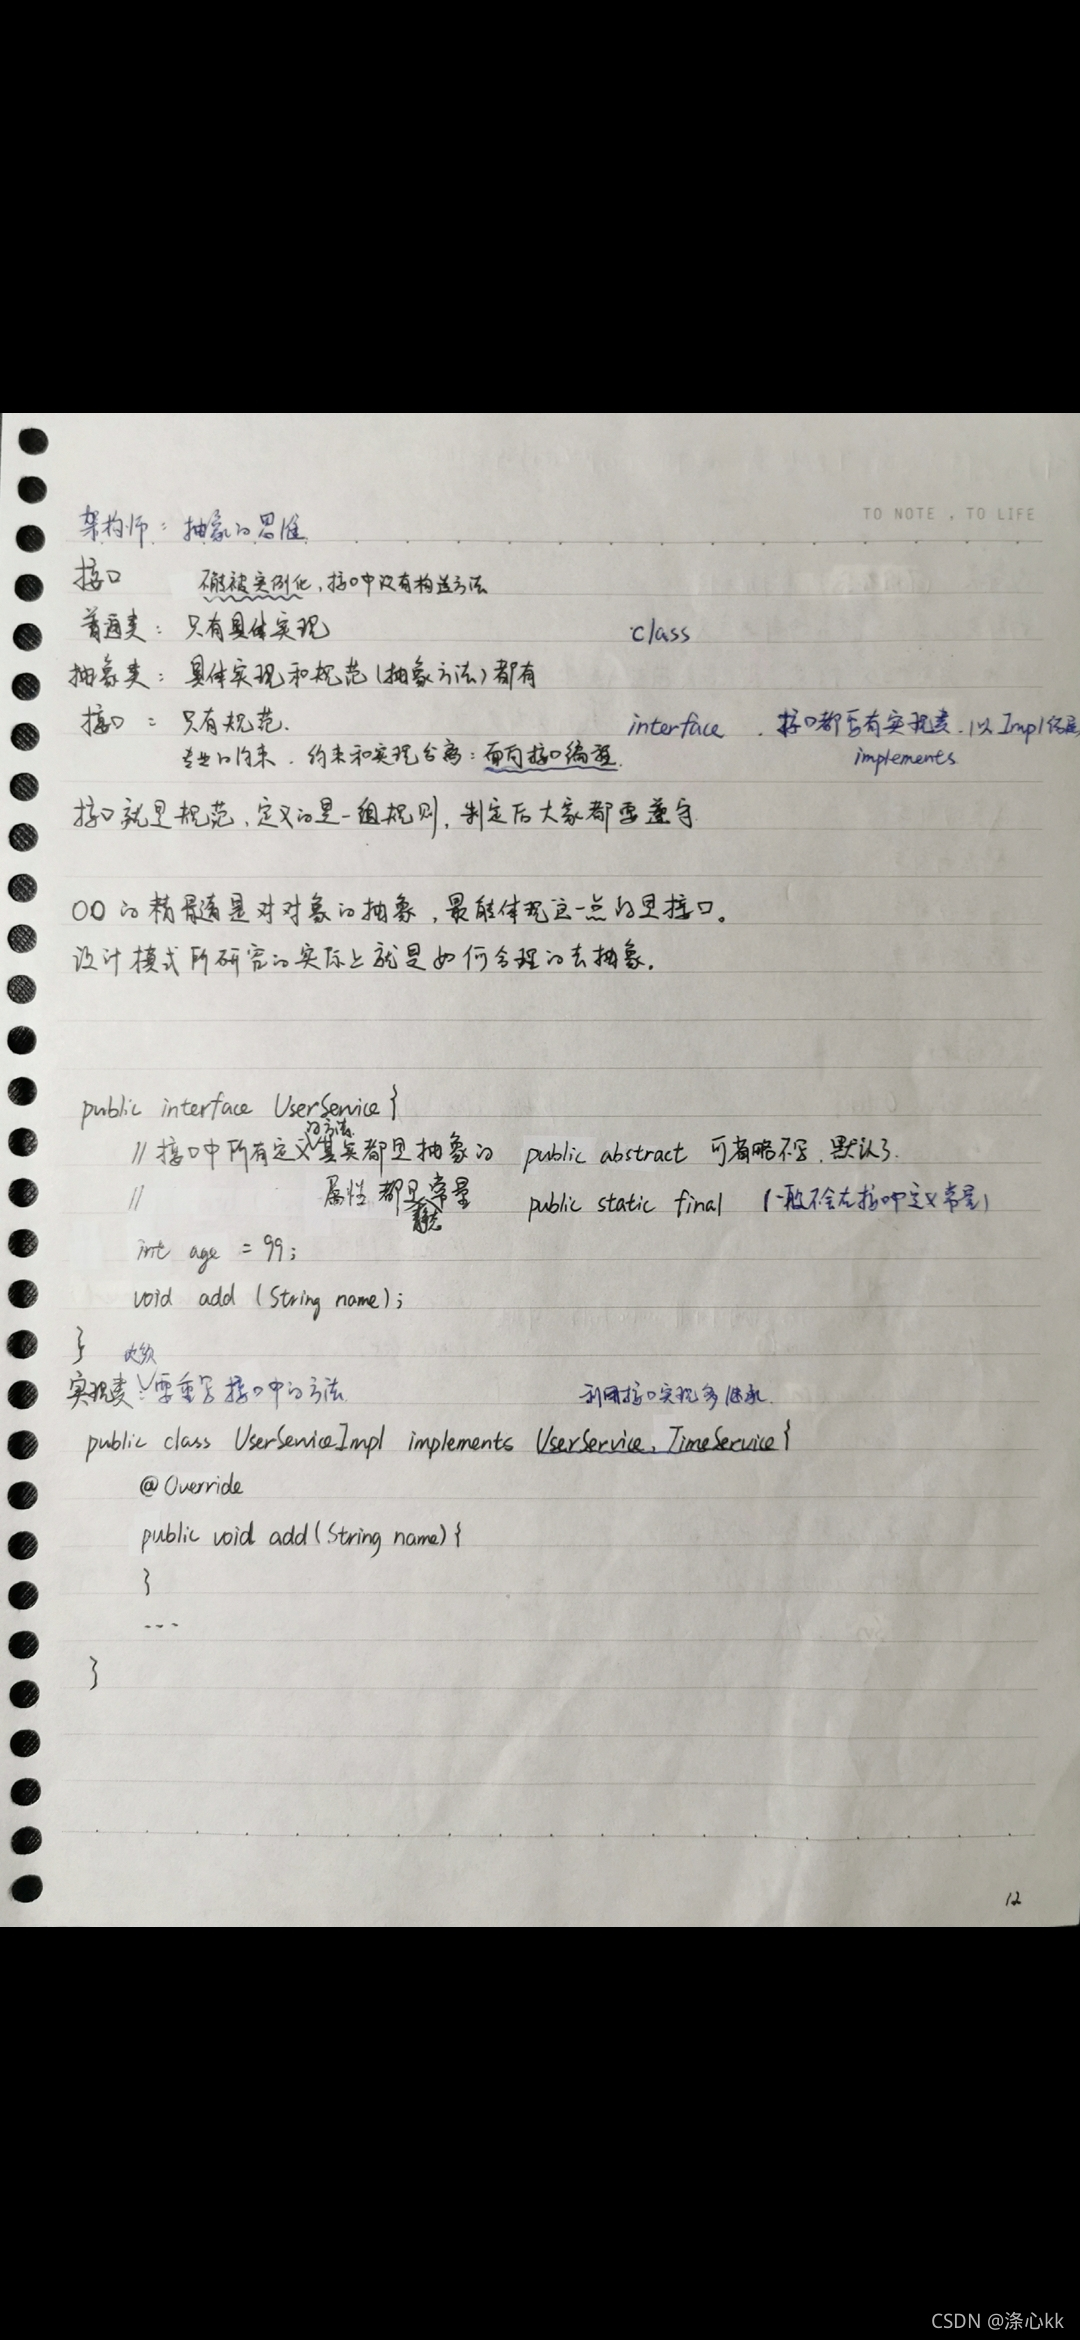 TO NOTE , TO LIFE
架构师：抽象的思维
接口 不能被实例化，接口中没有构造方法
普通类：只有具体实现 class
抽象类：具体实现和规范(抽象方法)都有
接口：只有规范. interface . 接口都需有实现类.以Impl结尾
专业的约束．约束和实现分离：面向接口编程. implements
接口就是规范，定义的是一组规则，制定后大家都要遵守
OO的精髓是对对象的抽象，最能体现这一点的是接口。
设计模式所研究的实际上就是如何合理的去抽象.
public interface UserService {
的方法
//接口中所有定义其实都是抽象的 public abstract 可省略不写，默认了.
// 属性都是常量 public static final (一般不会在接口中定义常量)
静态
int age = 99;
void add (String name);
}
必须
实现类：要重写接口中的方法 利用接口实现多继承.
public class UserServiceImpl implements UserService, TimeService{
@Override
public void add(String name){
}
...
}
12
CSDN @涤心kk